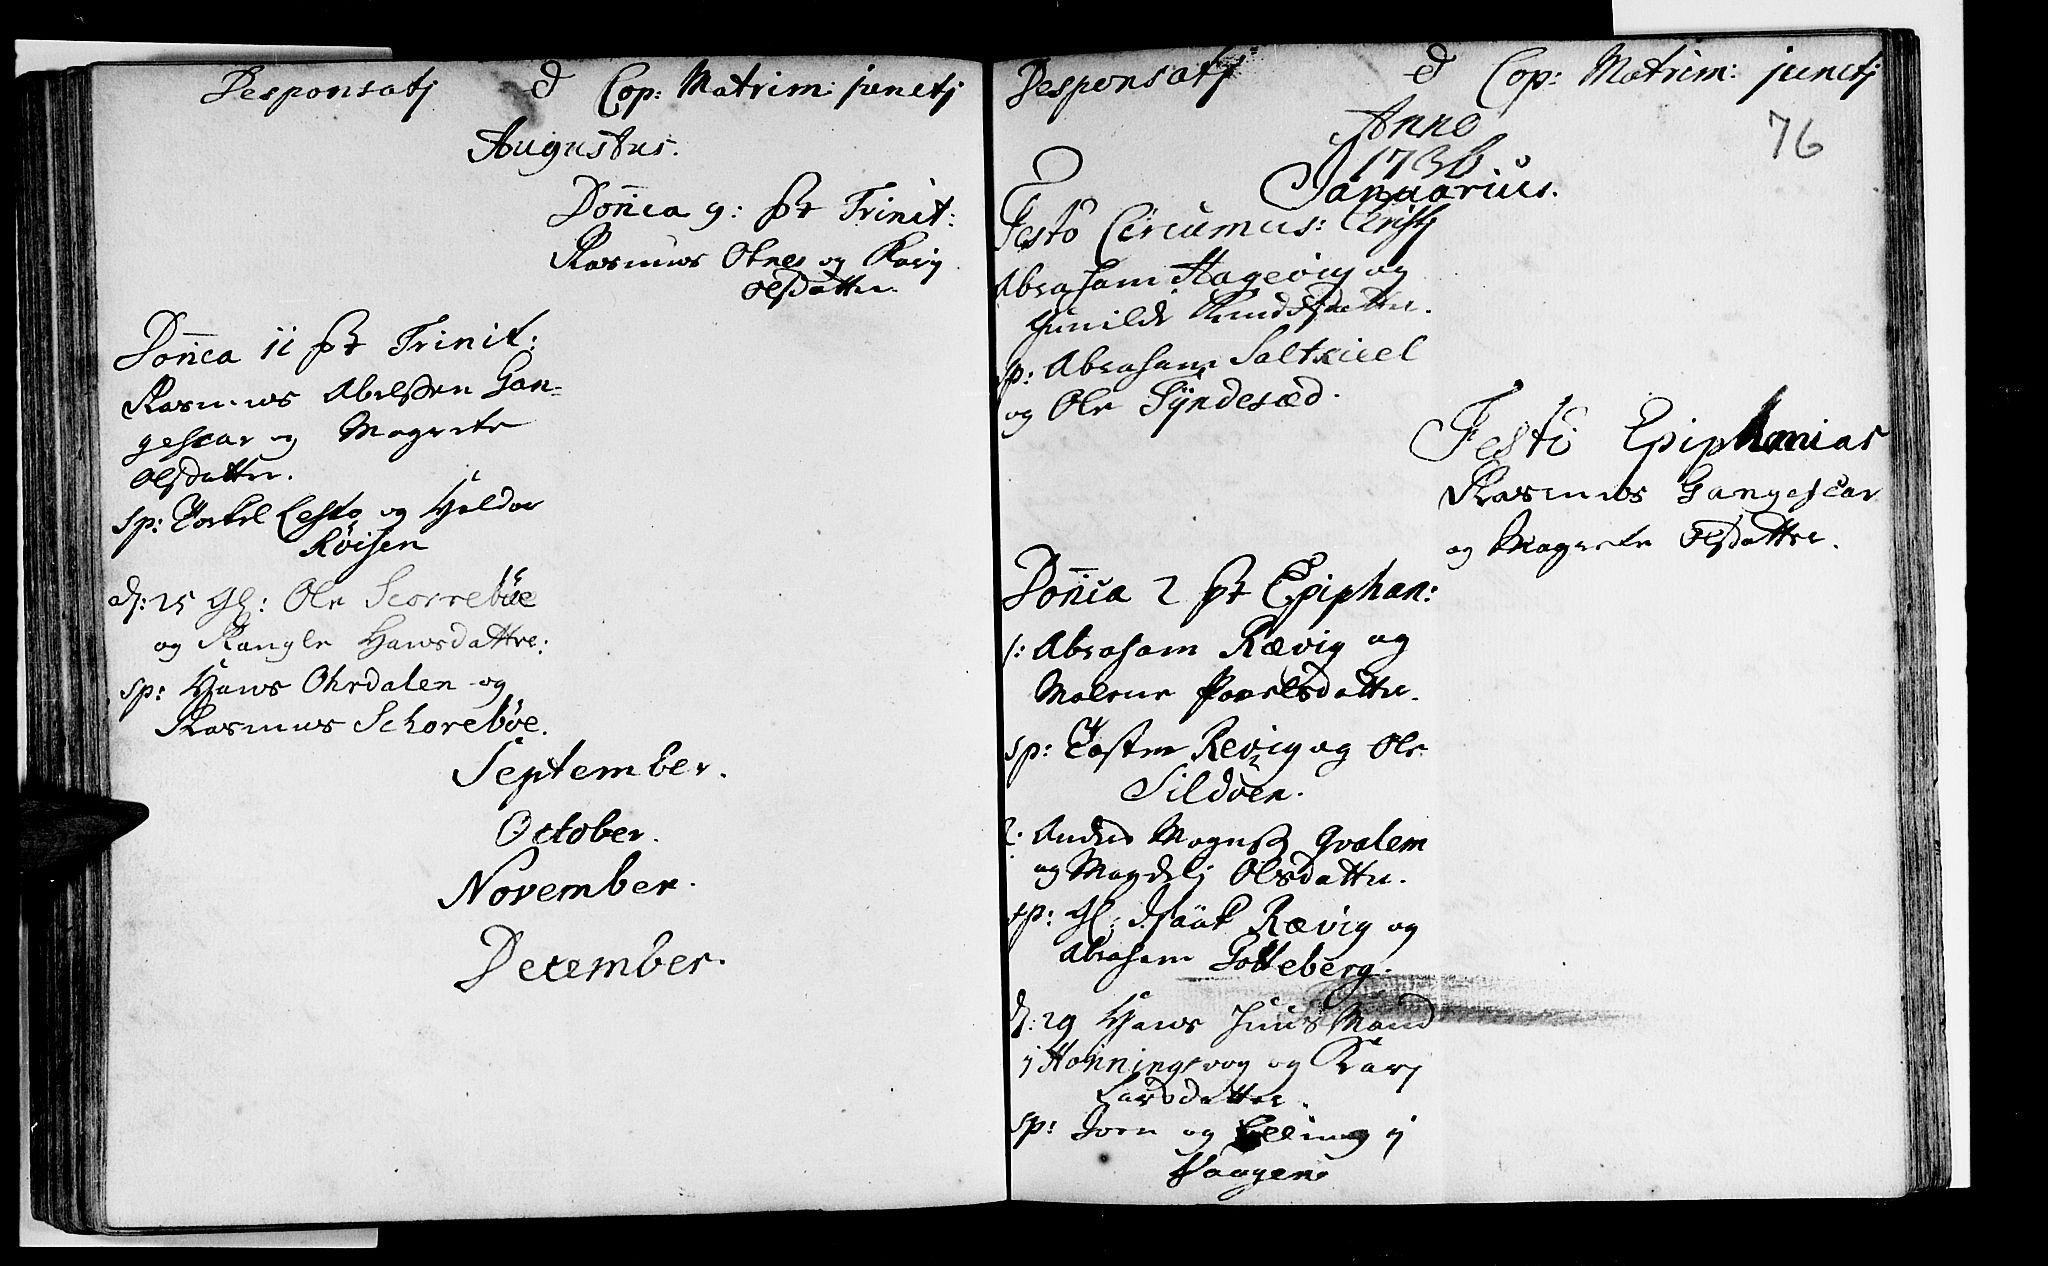 Desponsatj & Cop: Matrim: junctj
Augustus.
Don̄ica 9: pt Trinit:
Rasmus Otnes og Karj
Olsdatter
Don̄ica 11 pt Trinit:
Rasmus Abelsen Gan-
gescar og Magrete
Olsdatter.
Sp: Torkel Lestø og Haldor
Röisen
d: 25 Gl: Ole Scorrebøe
og Rangle Hansdatter:
Sp: Hans Ohrdalen og
Rasmus Schorebøe.
September.
October.
November.
December.
Desponsatj & Cop: Matrim: junctj
76
Anno
1736
Januarius.
Festo Circumcis: Christj
Abraham Hagevig og
Gunilde Knudsdatter.
Sp: Abraham Saltkieel
og Ole Tÿndesæd.
Festo Epiphanias
Rasmus Gangescar
og Magrete Olsdatter.
Don̄ica 2 pt Epiphan:
1: Abraham Rævig og
Malene Povelsdatter.
Sp: Tosten Revig og Ole
Sildöen.
2: Anders Magnuss Gvalem
og Magdelj Olsdatter.
Sp: Gl: Isaak Rævig og
Abraham Gotteberg.
d: 29 Hans Juus Mand
j Honningsvog og Karj
Larsdatter.
Sp: Joen og Elling j
Vaagen